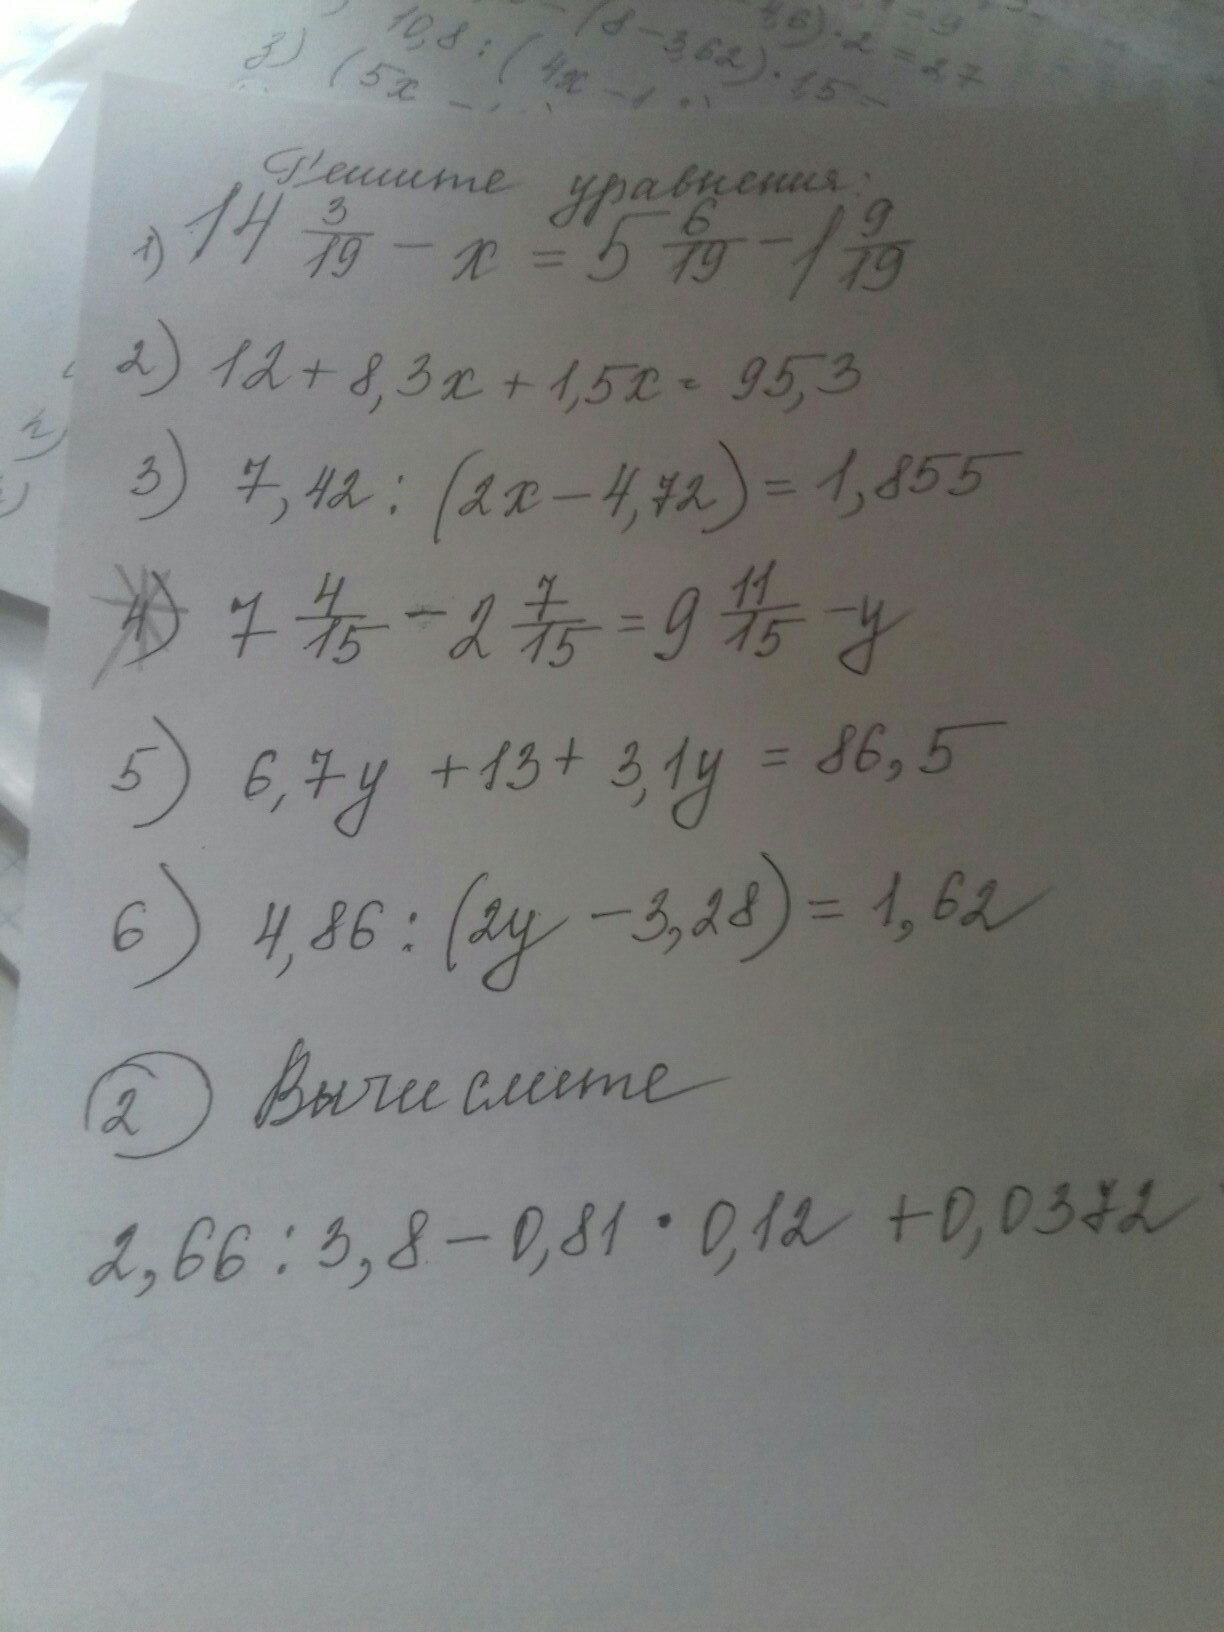 10,8 : (8 - 3,62) · 2 = 27
3) (5x - (4x - 1 · 15 =
Решите уравнения:
1) 14 3/19 - x = 5 6/19 - 1 9/19
2) 12 + 8,3x + 1,5x = 95,3
3) 7,42 : (2x - 4,72) = 1,855
4) 7 4/15 - 2 7/15 = 9 11/15 - y
5) 6,7y + 13 + 3,1y = 86,5
6) 4,86 : (2y - 3,28) = 1,62
2 Вычислите
2,66 : 3,8 - 0,81 · 0,12 + 0,0372